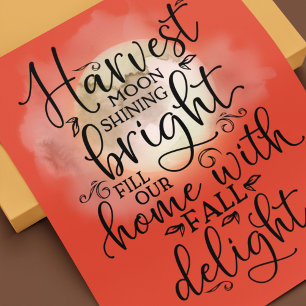 Harvest
MOON
SHINING
bright
FILL
OUR
home with
FALL
delight